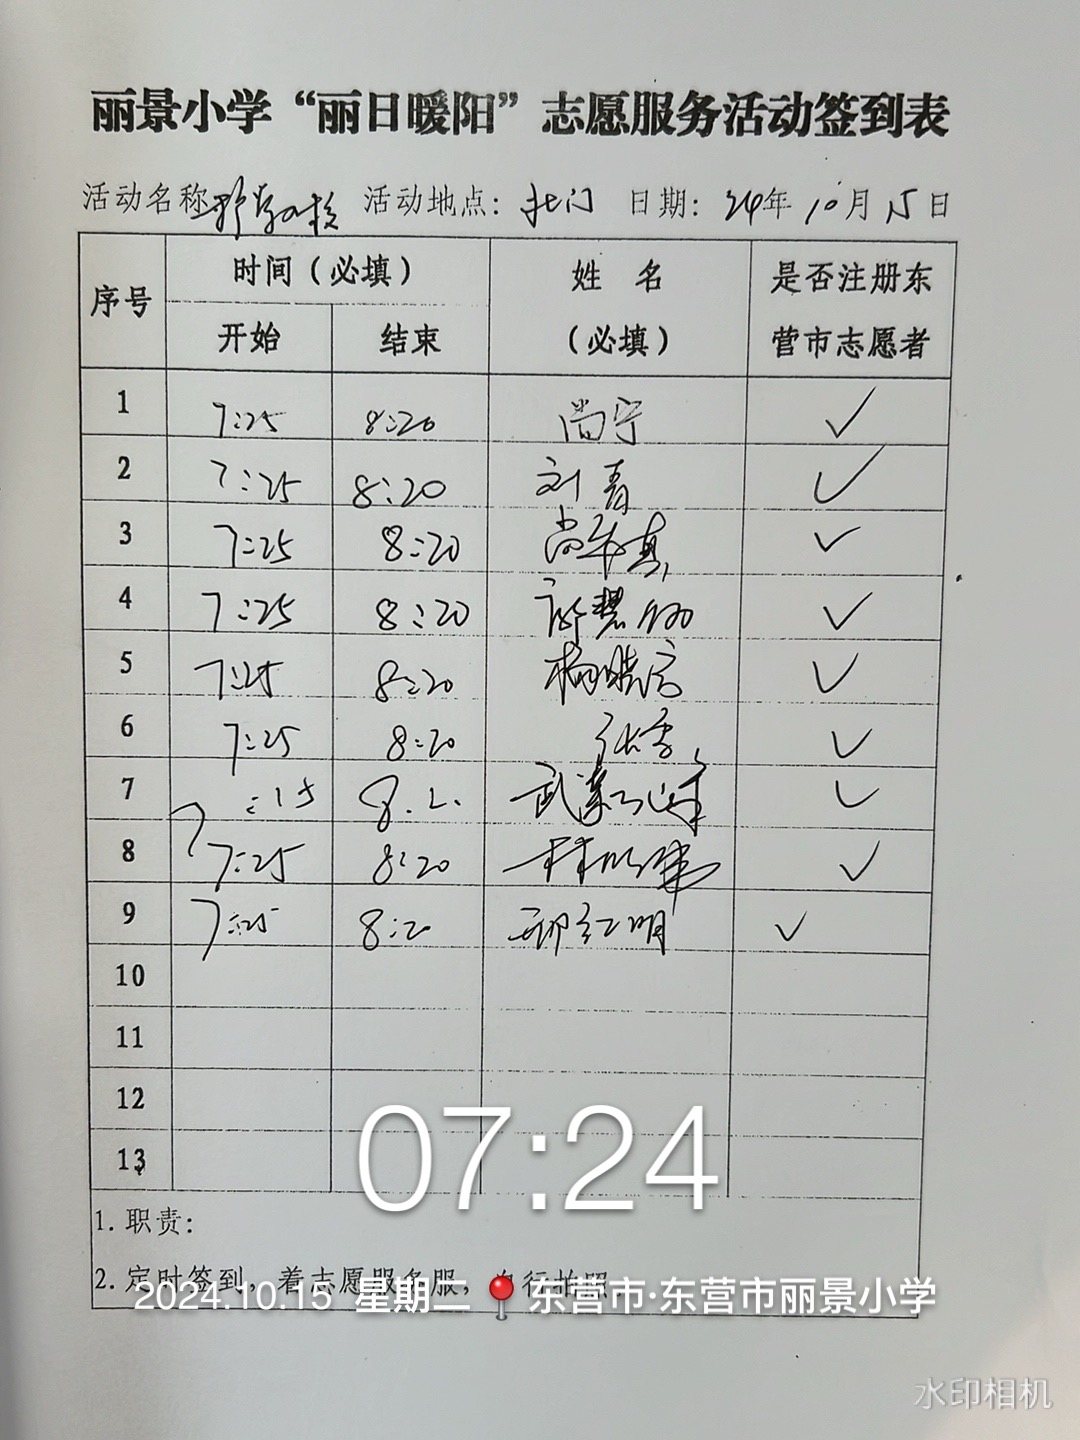 丽景小学“丽日暖阳”志愿服务活动签到表
活动名称 活动地点：北门 日期：24年10月15日
序号 时间（必填） 姓名（必填） 是否注册东营市志愿者
开始 结束
1 7:25 8:20 尚宁 ✓
2 7:25 8:20 刘青 ✓
3 7:25 8:20 ✓
4 7:25 8:20 ✓
5 7:25 8:20 杨晓 ✓
6 7:25 8:20 张雪 ✓
7 7:15 8.2. 武 ✓
8 7:25 8:20 ✓
9 7:25 8:20 邢红明 ✓
10
11
12
13
1. 职责：
2. 定时签到，着志愿服务服，自行拍照
07:24
2024.10.15 星期二 东营市·东营市丽景小学
水印相机